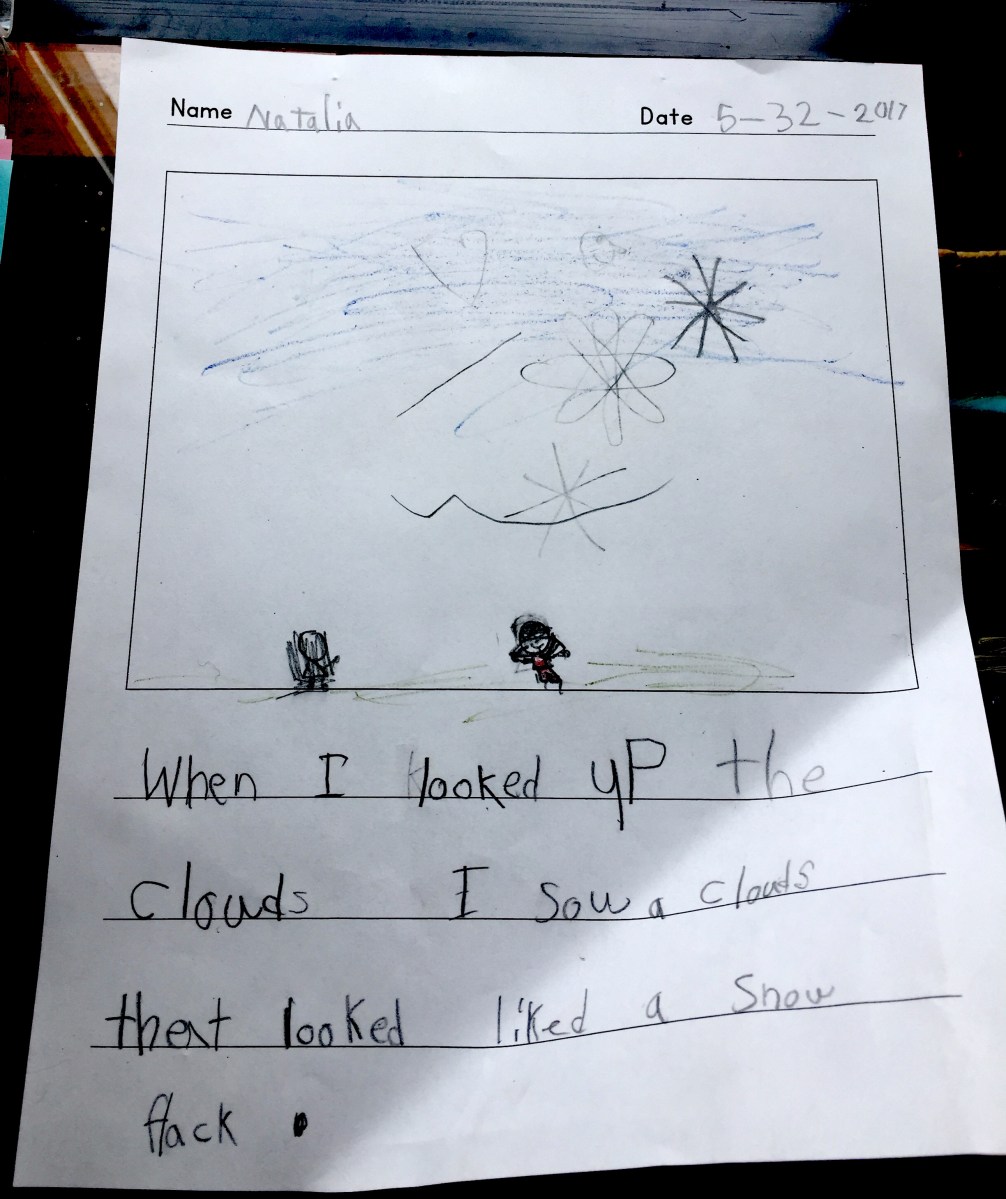 Name Natalia Date 5-32-2017
When I looked uP the
Clouds I sow a clouds
thest looked liked a snow
flack .